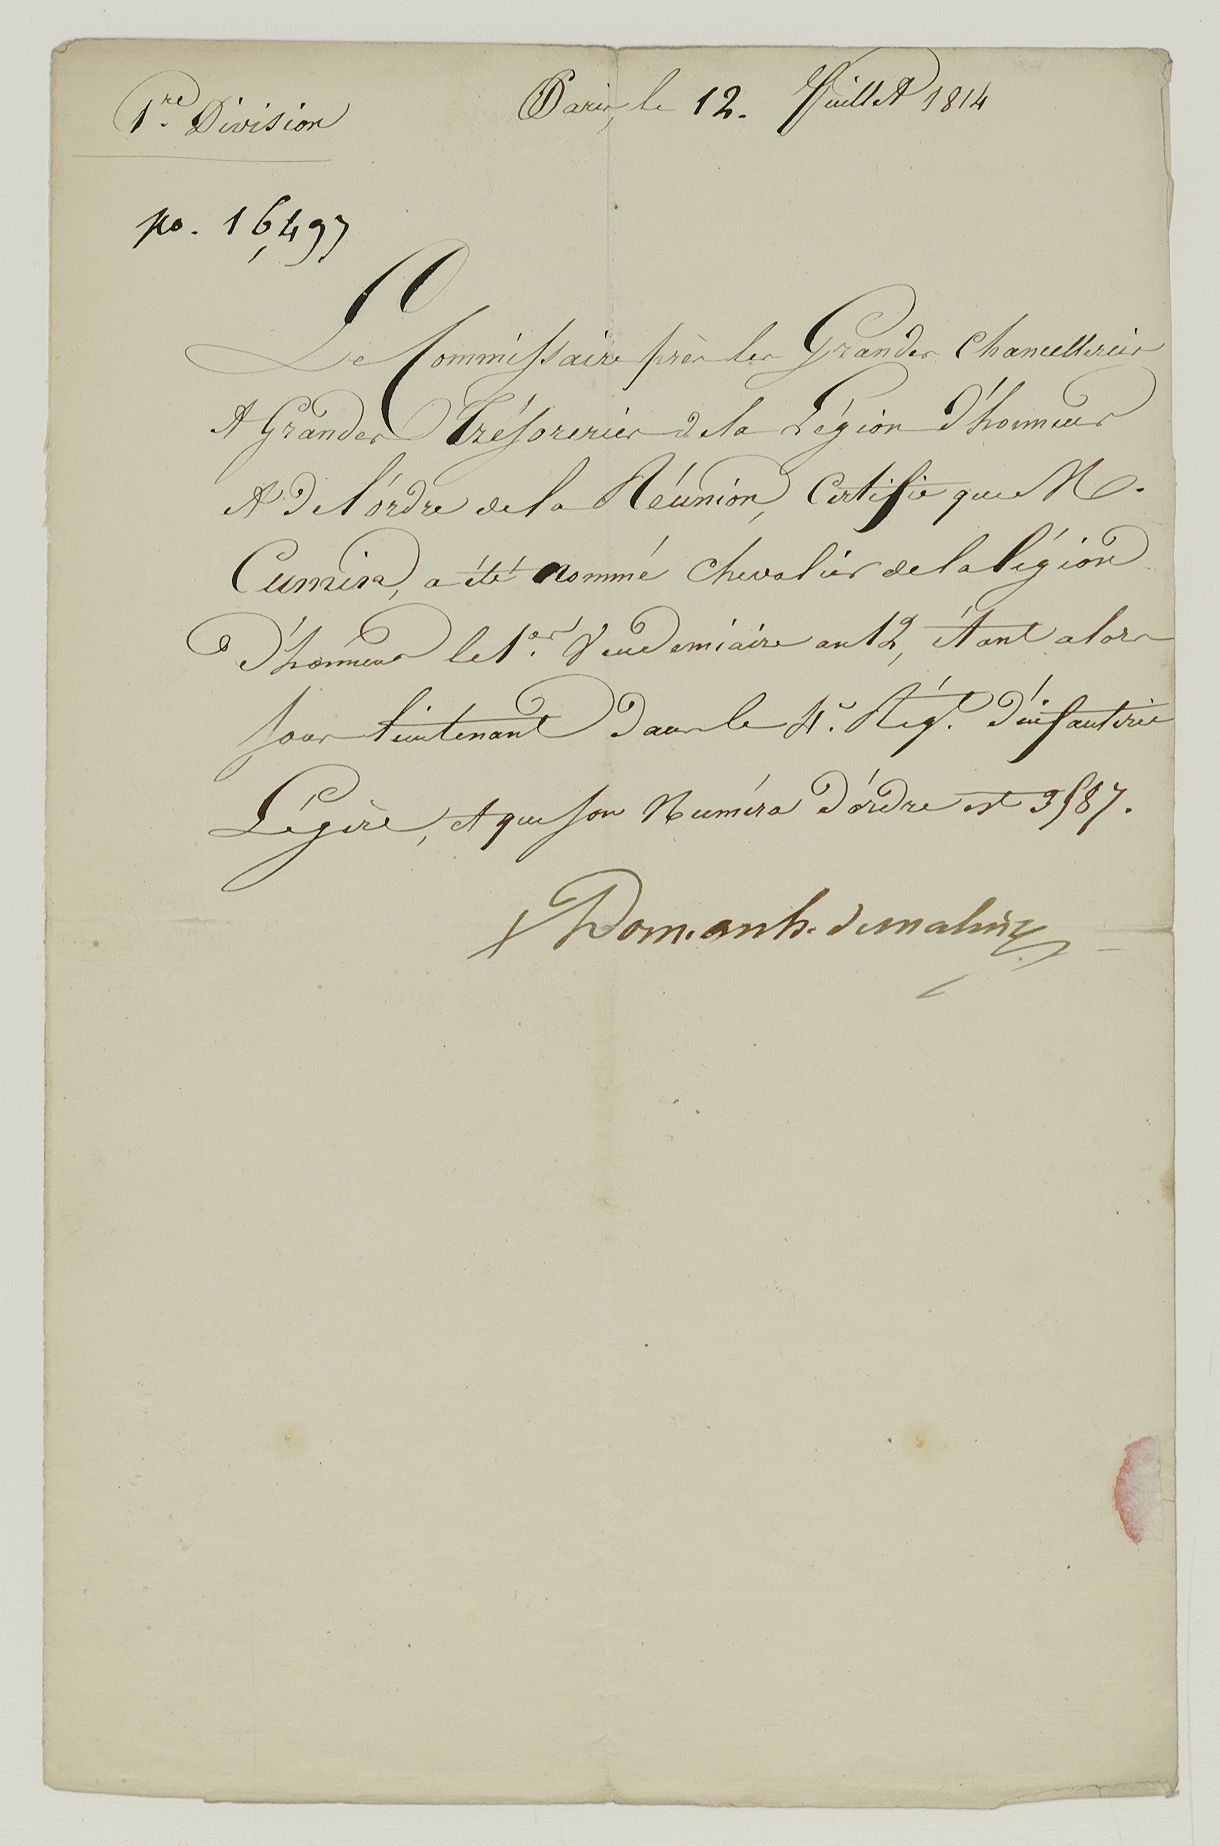 1.re Division
Paris, le 12. Juillet 1814
no. 16,497
Le Commissaire près les Grandes Chancelleries
et Grandes Trésoreries de la Légion d'honneur
et de l'ordre de la Réunion, Certifie que M.
Cumin, a été nommé chevalier de la légion
d'honneur le 1.er Vendemiaire an 12, étant alors
sous lieutenant dans le 4.e Rég.t d'infanterie
Légère, et que son Numéro d'ordre est 3587.